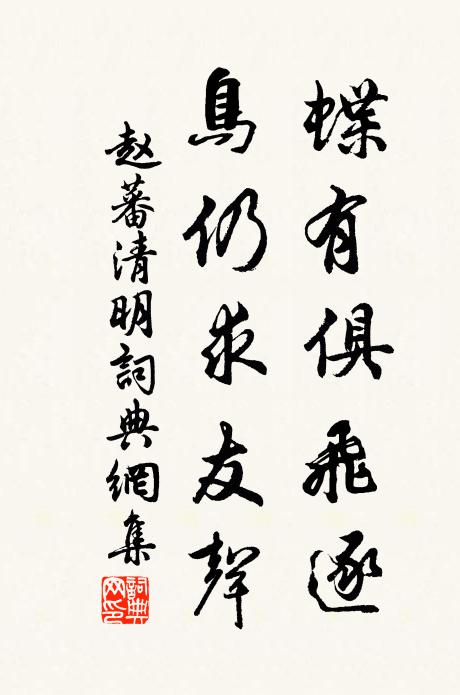 蝶有俱飛逐
鳥仍求友聲
赵蕃清明詞典網集
詞典网印